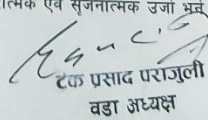 त्मक एवं सृजनात्मक उर्जा भर्न
टंक प्रसाद पराजुली
वडा अध्यक्ष